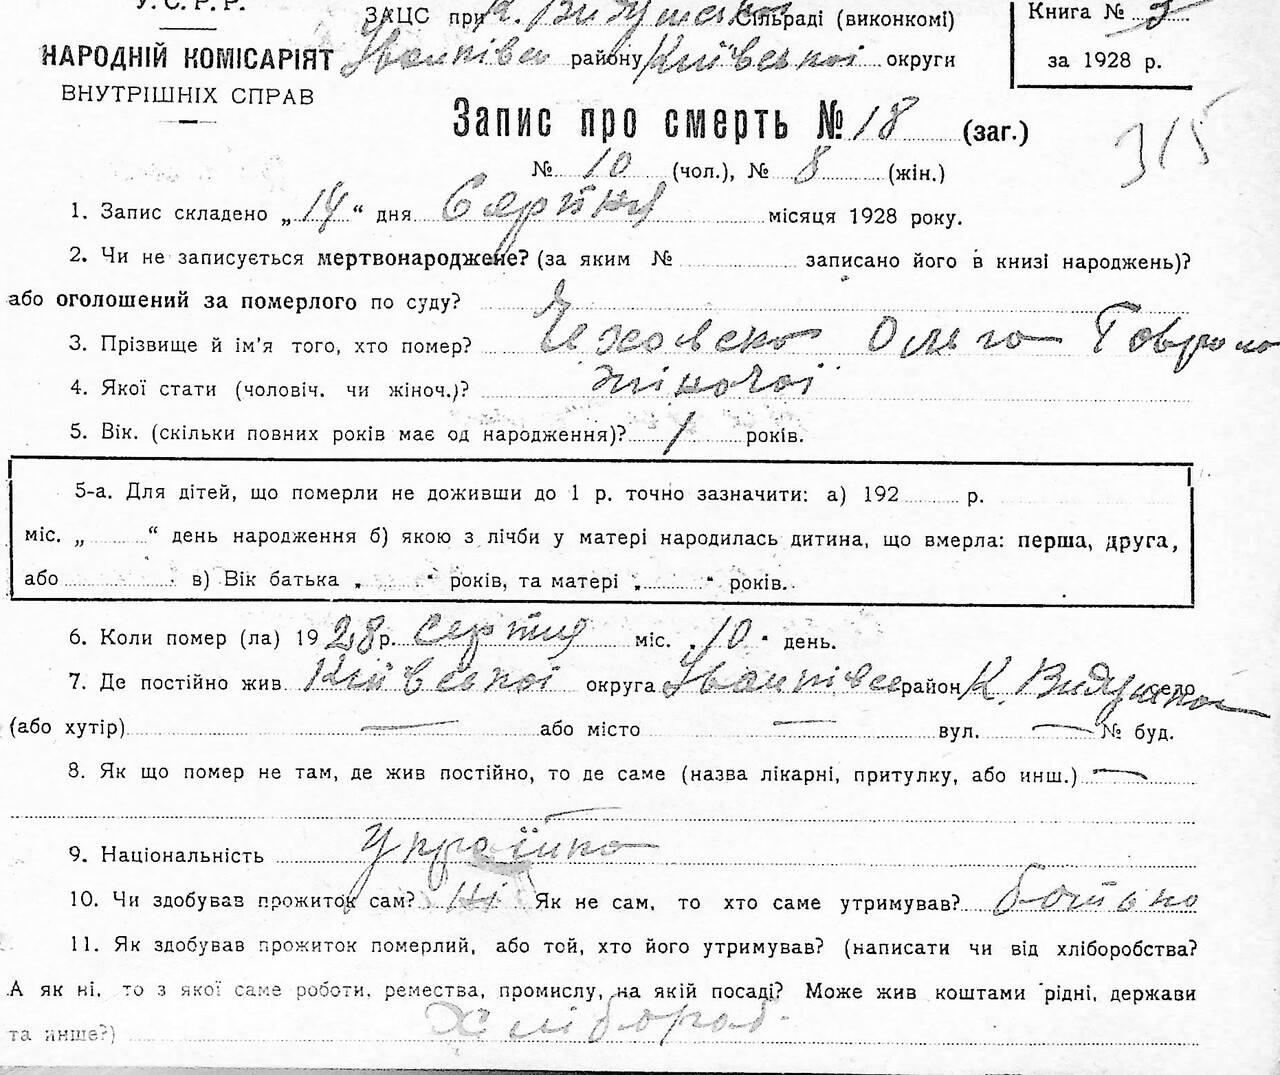 У. С. Р. Р.
ЗАЦС при К. Сільраді (виконкомі)
Книга № 3
НАРОДНІЙ КОМІСАРІЯТ
району Київської округи
за 1928 р.
ВНУТРІШНІХ СПРАВ
Запис про смерть № 18 (заг.)
315
№ 10 (чол.), № 8 (жін.)
1. Запис складено „ 14 “ дня Серпня місяця 1928 року.
2. Чи не записується мертвонароджене? (за яким № записано його в книзі народжень)?
або оголошений за померлого по суду?
3. Прізвище й ім'я того, хто помер? Ольга
4. Якої стати (чоловіч. чи жіноч.)? жіночої
5. Вік. (скільки повних років має од народження)? 1 років.
5-а. Для дітей, що померли не доживши до 1 р. точно зазначити: а) 192 р.
міс. „ “ день народження б) якою з лічби у матері народилась дитина, що вмерла: перша, друга,
або в) Вік батька „ “ років, та матері „ “ років.
6. Коли помер (ла) 1928 р. серпня міс. „10“ день.
7. Де постійно жив Київської округа район К. село
(або хутір) — або місто — вул. — № буд.
8. Як що помер не там, де жив постійно, то де саме (назва лікарні, притулку, або инш.) —
9. Національність Українка
10. Чи здобував прожиток сам? Ні Як не сам, то хто саме утримував? батько
11. Як здобував прожиток померлий, або той, хто його утримував? (написати чи від хліборобства?
А як ні, то з якої саме роботи, ремества, промислу, на якій посаді? Може жив коштами рідні, держави
та инше?) Хлібороб.